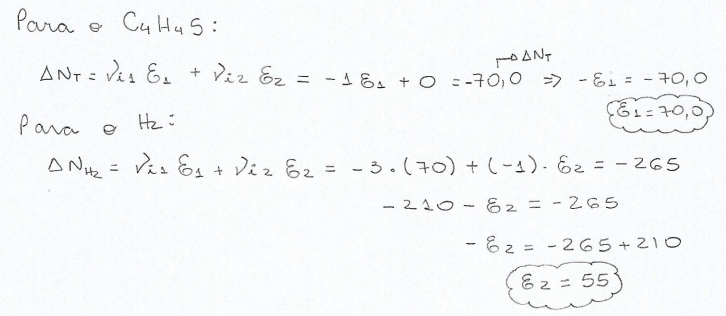 Para o C₄H₄S:
ΔN_T
ΔN_T = ν_i1 ε_1 + ν_i2 ε_2 = -1 ε_1 + 0 = -70,0 ⇒ -ε_1 = -70,0
ε_1 = 70,0
Para o H₂:
ΔN_H₂ = ν_i1 ε_1 + ν_i2 ε_2 = -3 · (70) + (-1) · ε_2 = -265
-210 - ε_2 = -265
-ε_2 = -265 + 210
ε_2 = 55